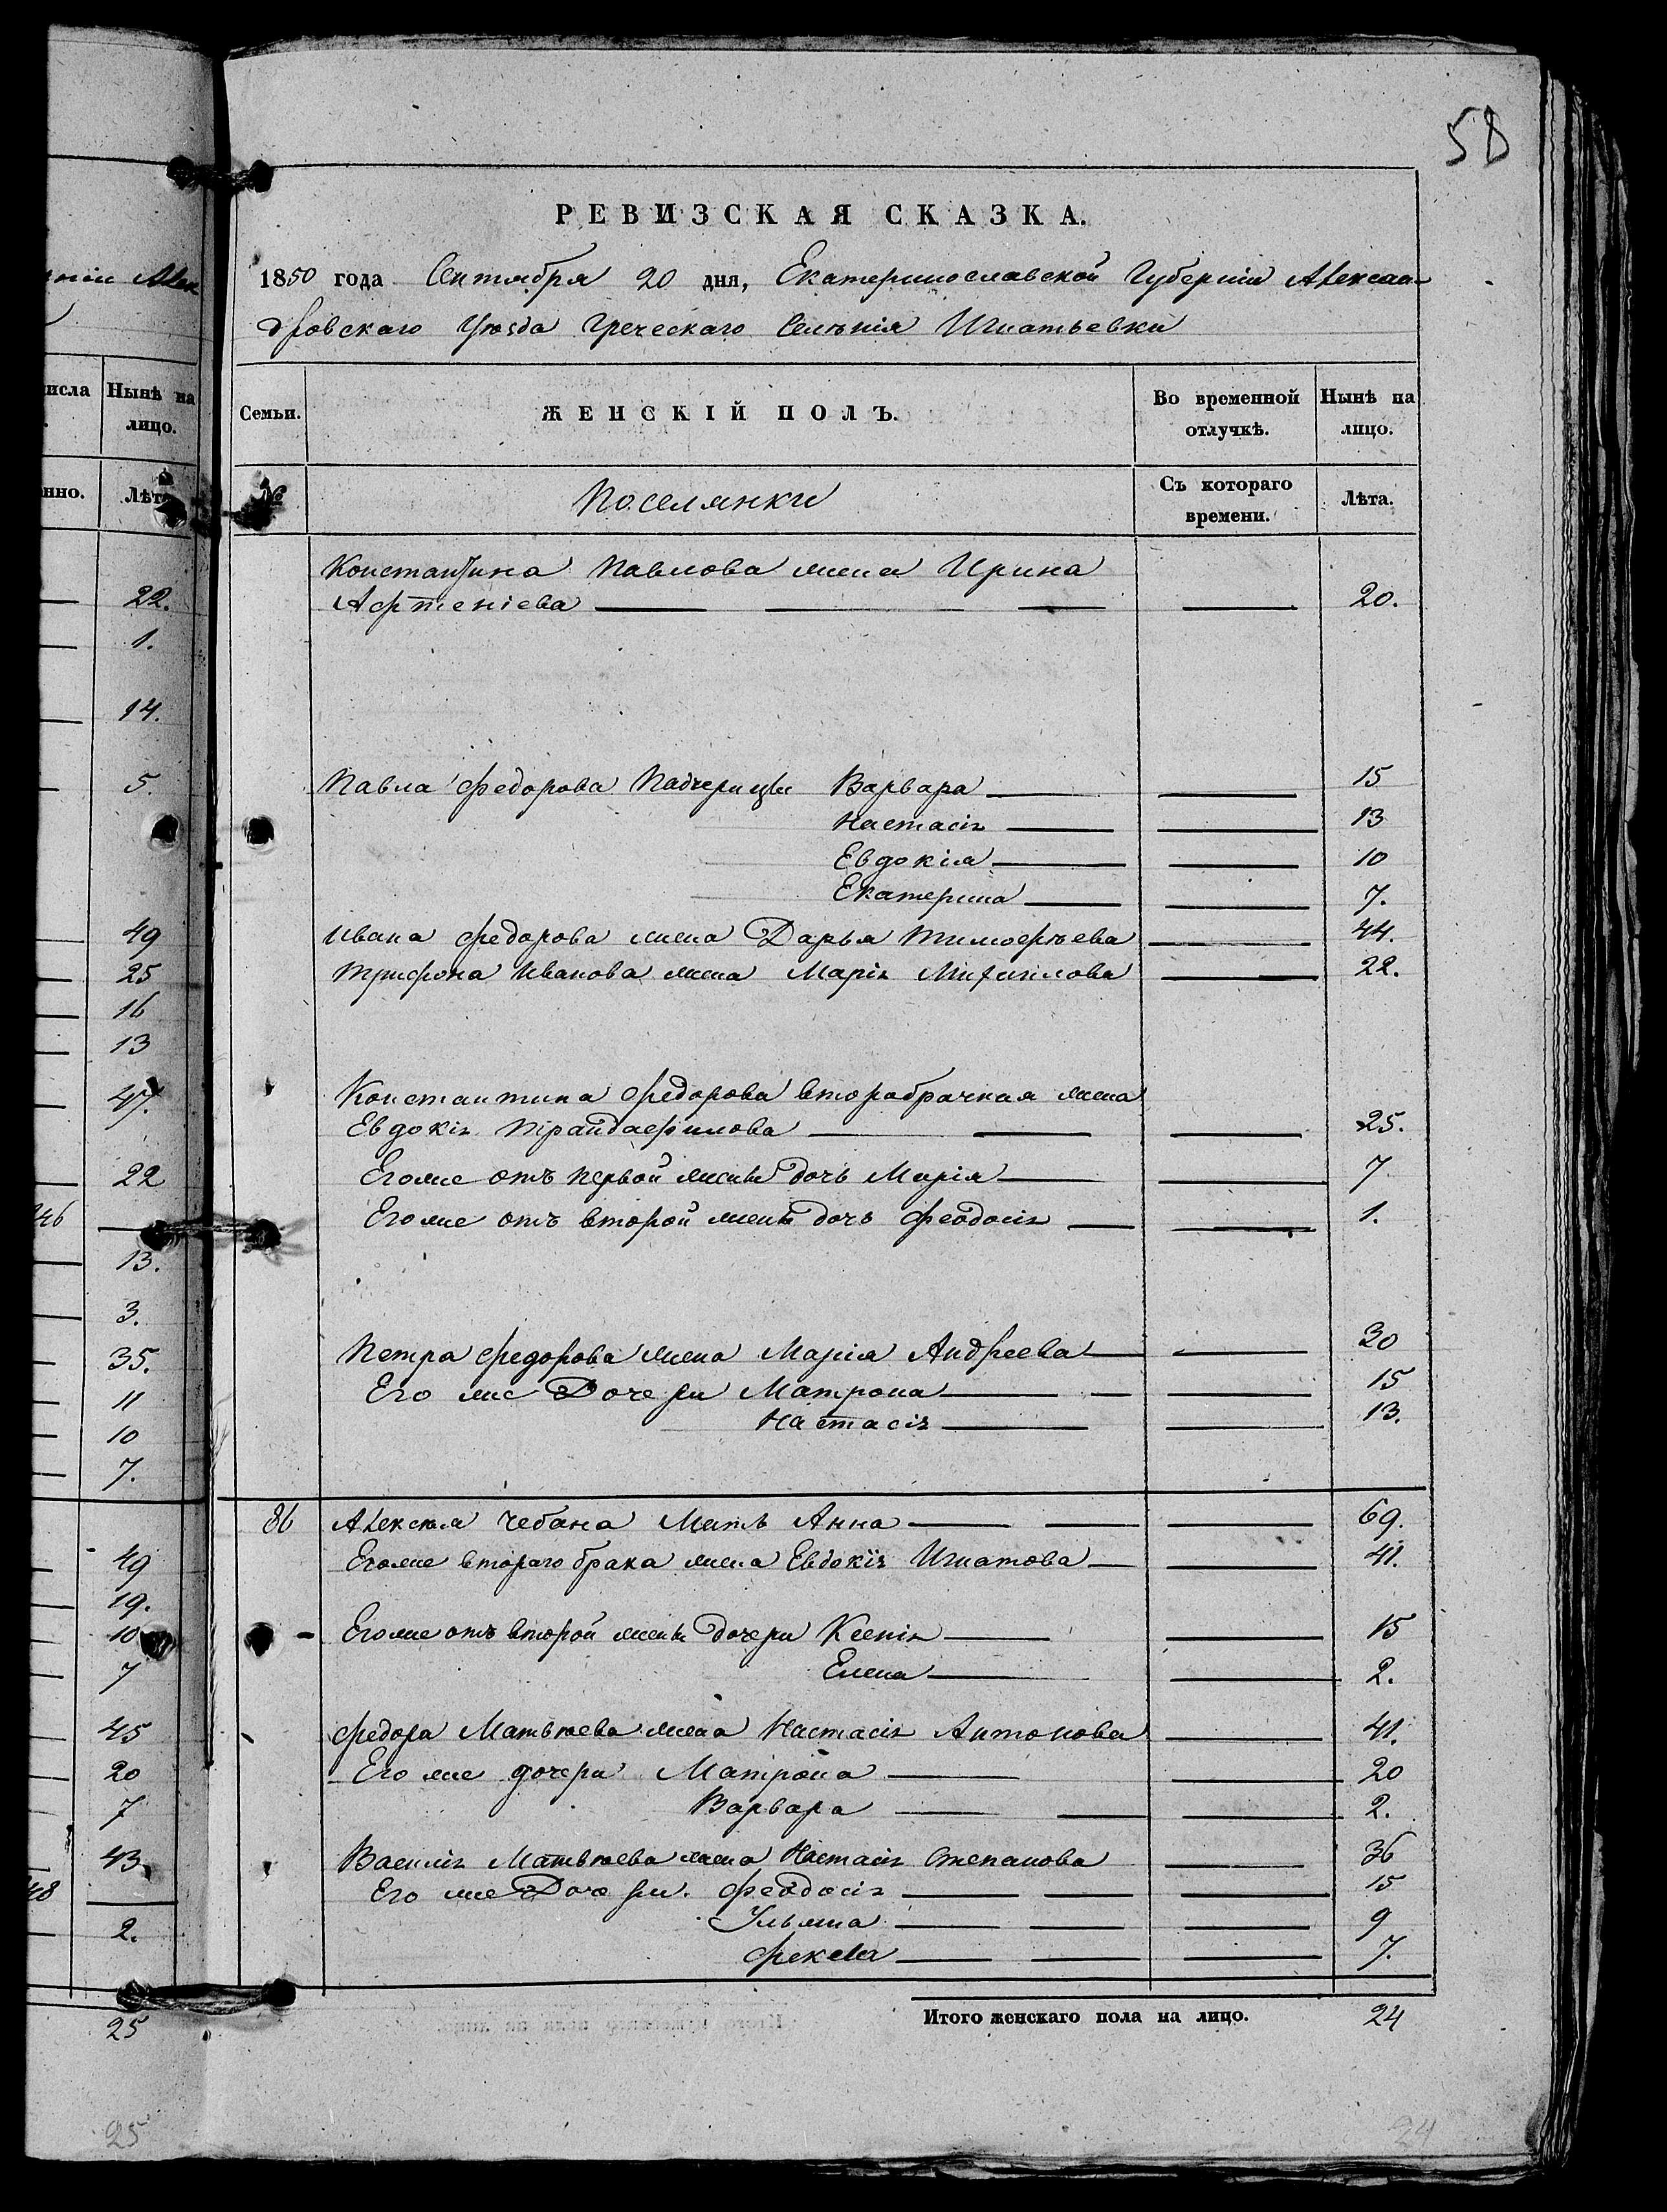 58
РЕВИЗСКАЯ СКАЗКА.
1850 года Сентября 20 дня, Екатеринославской Губерніи Алексан-
дровскаго Уѣзда Греческаго Селѣнія Игнатьевки
Семьи. ЖЕНСКІЙ ПОЛЪ. Во временной отлучкѣ. Нынѣ на лицо.
№ Поселянки Съ котораго времени. Лѣта.
Константина Павлова жена Ирина
Афтеніева 20.
Павла Федорова Падчерицы Варвара 15
Настасія 13
Евдокія 10
Екатерина 7.
Ивана Федорова жена Дарья Тимофѣева 44.
Трифона Иванова жена Марія Михаилова 22.
Константина Федорова вторабрачная жена
Евдокія Трандафилова 25.
Егоже отъ первой жены дочь Марія 7
Егоже отъ второй жены дочь Феодосія 1.
Петра Федорова жена Марія Андреева 30
Его же Дочери Матрона 15
Настасія 13.
86 Алексѣя Чебана Мать Анна 69.
Егоже втораго брака жена Евдокія Игнатова 41.
Егоже отъ второй жены дочери Ксенія 15
Елена 2.
Федора Матвѣева жена Настасія Антонова 41.
Его же дочери Матрона 20
Варвара 2.
Василія Матвѣева жена Настасія Степанова 36
Его же Дочери Феодосія 15
Ульяна 9
Фекла 7.
Итого женскаго пола на лицо. 24
24
нніи Алек
исла Нынѣ на
лицо.
нно. Лѣта
22.
1.
14.
5.
49
25
16
13
47.
22
246
13.
3.
35.
11
10
7.
49
19.
10
7
45
20
7
43.
48
2.
25
25